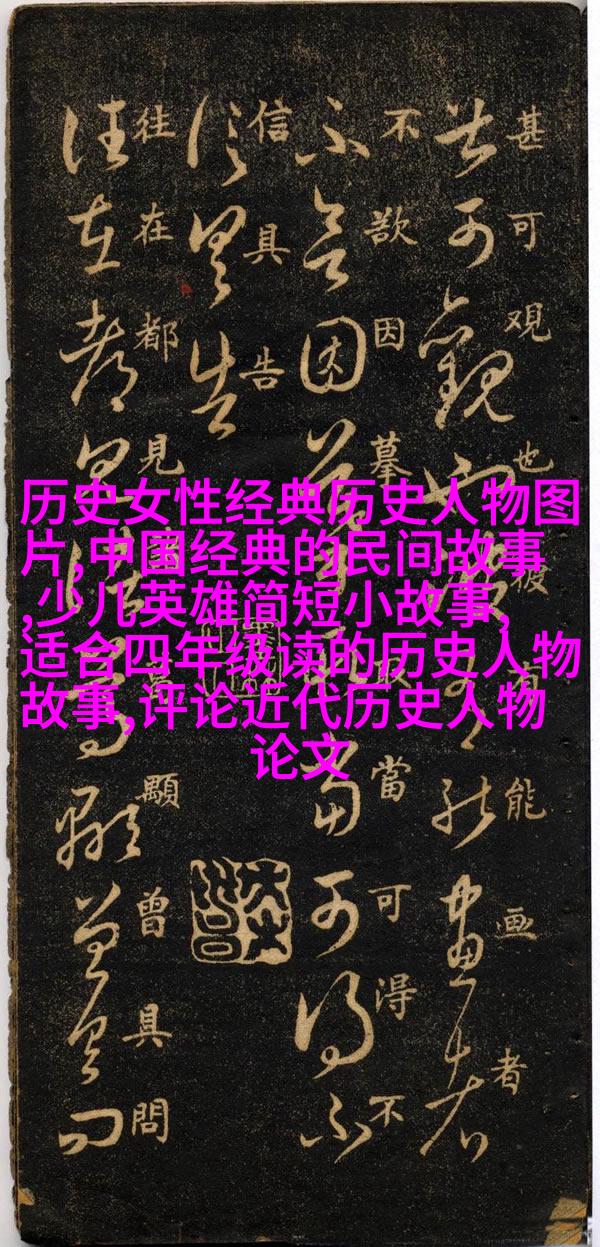 历史女性经典历史人物图
片,中国经典的民间故事
,少儿英雄简短小故事,
适合四年级读的历史人物
故事,评论近代历史人物
论文
甚可觀也彼有能画者
不欲因摹取當可得不
信具告
往在都見顯曾具問